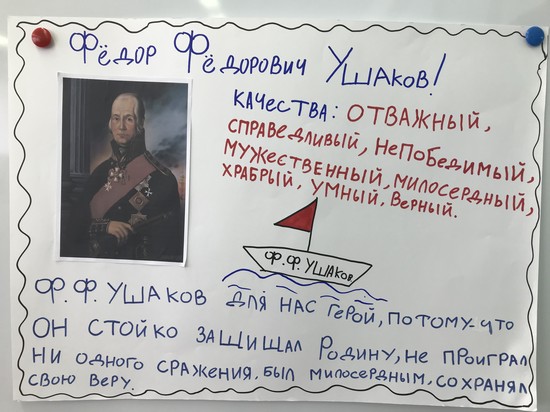 Фёдор Фёдорович Ушаков!
Качества: отважный,
справедливый, непобедимый,
мужественный, милосердный,
храбрый, умный, верный.
Ф.Ф. Ушаков
Ф.Ф. Ушаков для нас герой, потому-что
он стойко защищал Родину, не проиграл
ни одного сражения. Был милосердным, сохранял
свою веру.